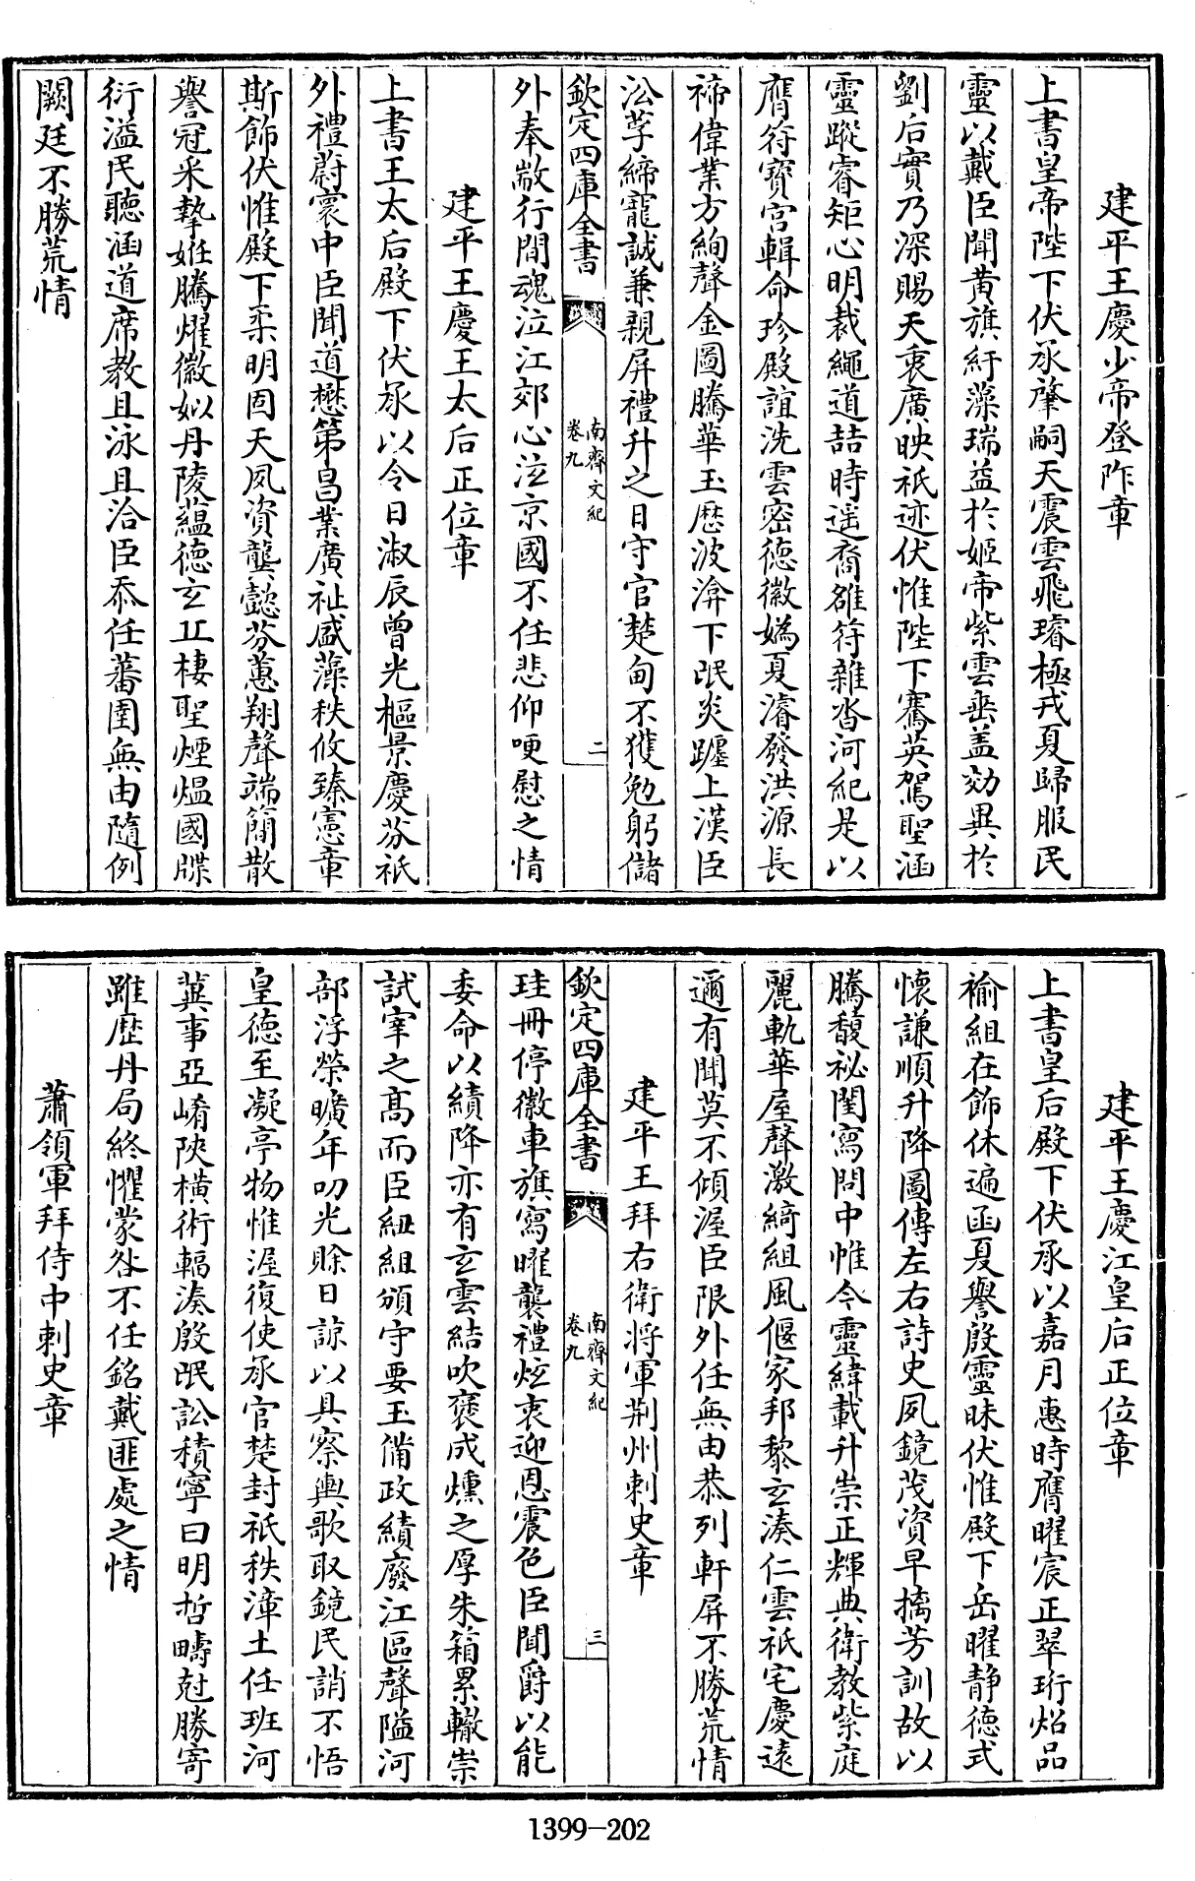 建平王慶少帝登阼章
上書皇帝陛下伏承肇嗣天震雲飛璿極戎夏歸服民
靈以戴臣聞黄旗紆藻瑞益於姬帝紫雲垂盖効異於
劉后實乃深賜天衷廣映祇迹伏惟陛下騫英駕聖涵
靈蹤睿矩心明裁繩道喆時遥裔雒符雜沓河紀是以
膺符寶宫輯命珍殿誼洗雲密徳徽媯夏濬發洪源長
褅偉業方絢聲金圖騰華玉歴波渰下氓炎躔上漢臣
㳂莩締寵誠兼親屏禮升之日守官楚甸不獲勉躬儲
欽定四庫全書
南齊文紀
卷九
二
外奉敝行間魂泣江郊心泫京國不任悲仰哽慰之情
建平王慶王太后正位章
上書王太后殿下伏承以令日淑辰曾光樞景慶芬祇
外禮蔚寰中臣聞道懋第昌業廣祉盛藻秩攸臻憲章
斯飾伏惟殿下柔明固天夙資龔懿芬蕙翔聲端簡散
譽冠采摯姙騰燿徽姒丹陵藴徳玄丘棲聖煙煴國牒
衍溢民聽涵道席教且泳且洽臣忝任蕃圉無由隨例
闕廷不勝荒情
建平王慶江皇后正位章
上書皇后殿下伏承以嘉月惠時膺曜宸正翠珩炤品
褕組在飾休遍函夏譽殷靈昧伏惟殿下岳曜静德式
懷謙順升降圖傳左右詩史夙鏡茂資早摛芳訓故以
騰馥祕閨寫問中帷今靈緯載升崇正輝典衛教紫庭
麗軌華屋聲激綺組風偃家邦黎玄湊仁雲祇宅慶遠
邇有聞莫不傾渥臣限外任無由恭列軒屏不勝荒情
建平王拜右衛将軍荆州刺史章
欽定四庫全書
南齊文紀
卷九
三
珪冊停徽車旗寫曜襲禮炫衷迎恩震色臣聞爵以能
委命以績降亦有玄雲結吹褒成爊之厚朱箱累轍崇
試宰之髙而臣紐組頒守要玉備政績廢江區聲隘河
部浮榮曠年叨光賒日諒以具察輿歌取鏡民誚不悟
皇德至凝亭物惟渥復使承官楚封祇秩漳土任班河
冀事亞崤陜横術輻湊殷氓訟積寧曰明哲疇尅勝寄
雖歴丹局終懼蒙咎不任銘戴匪處之情
蕭領軍拜侍中刺史章
1399-202